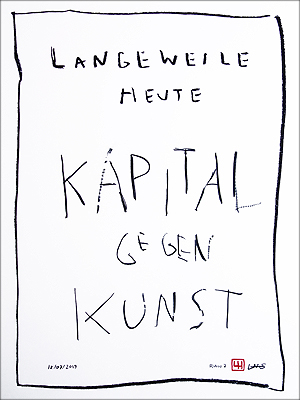 LANGEWEILE
HEUTE
KAPITAL
GEGEN
KUNST